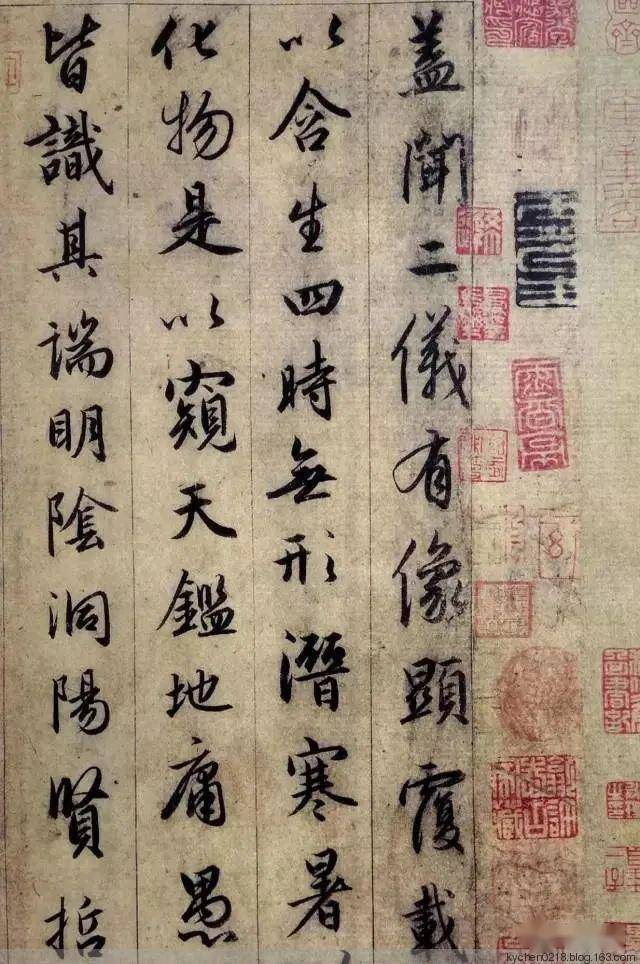 蓋聞二儀有像顯覆載
以含生四時無形潛寒暑
化物是以窺天鑑地庸愚
皆識其端明陰洞陽賢哲
kychen0218.blog.163.com